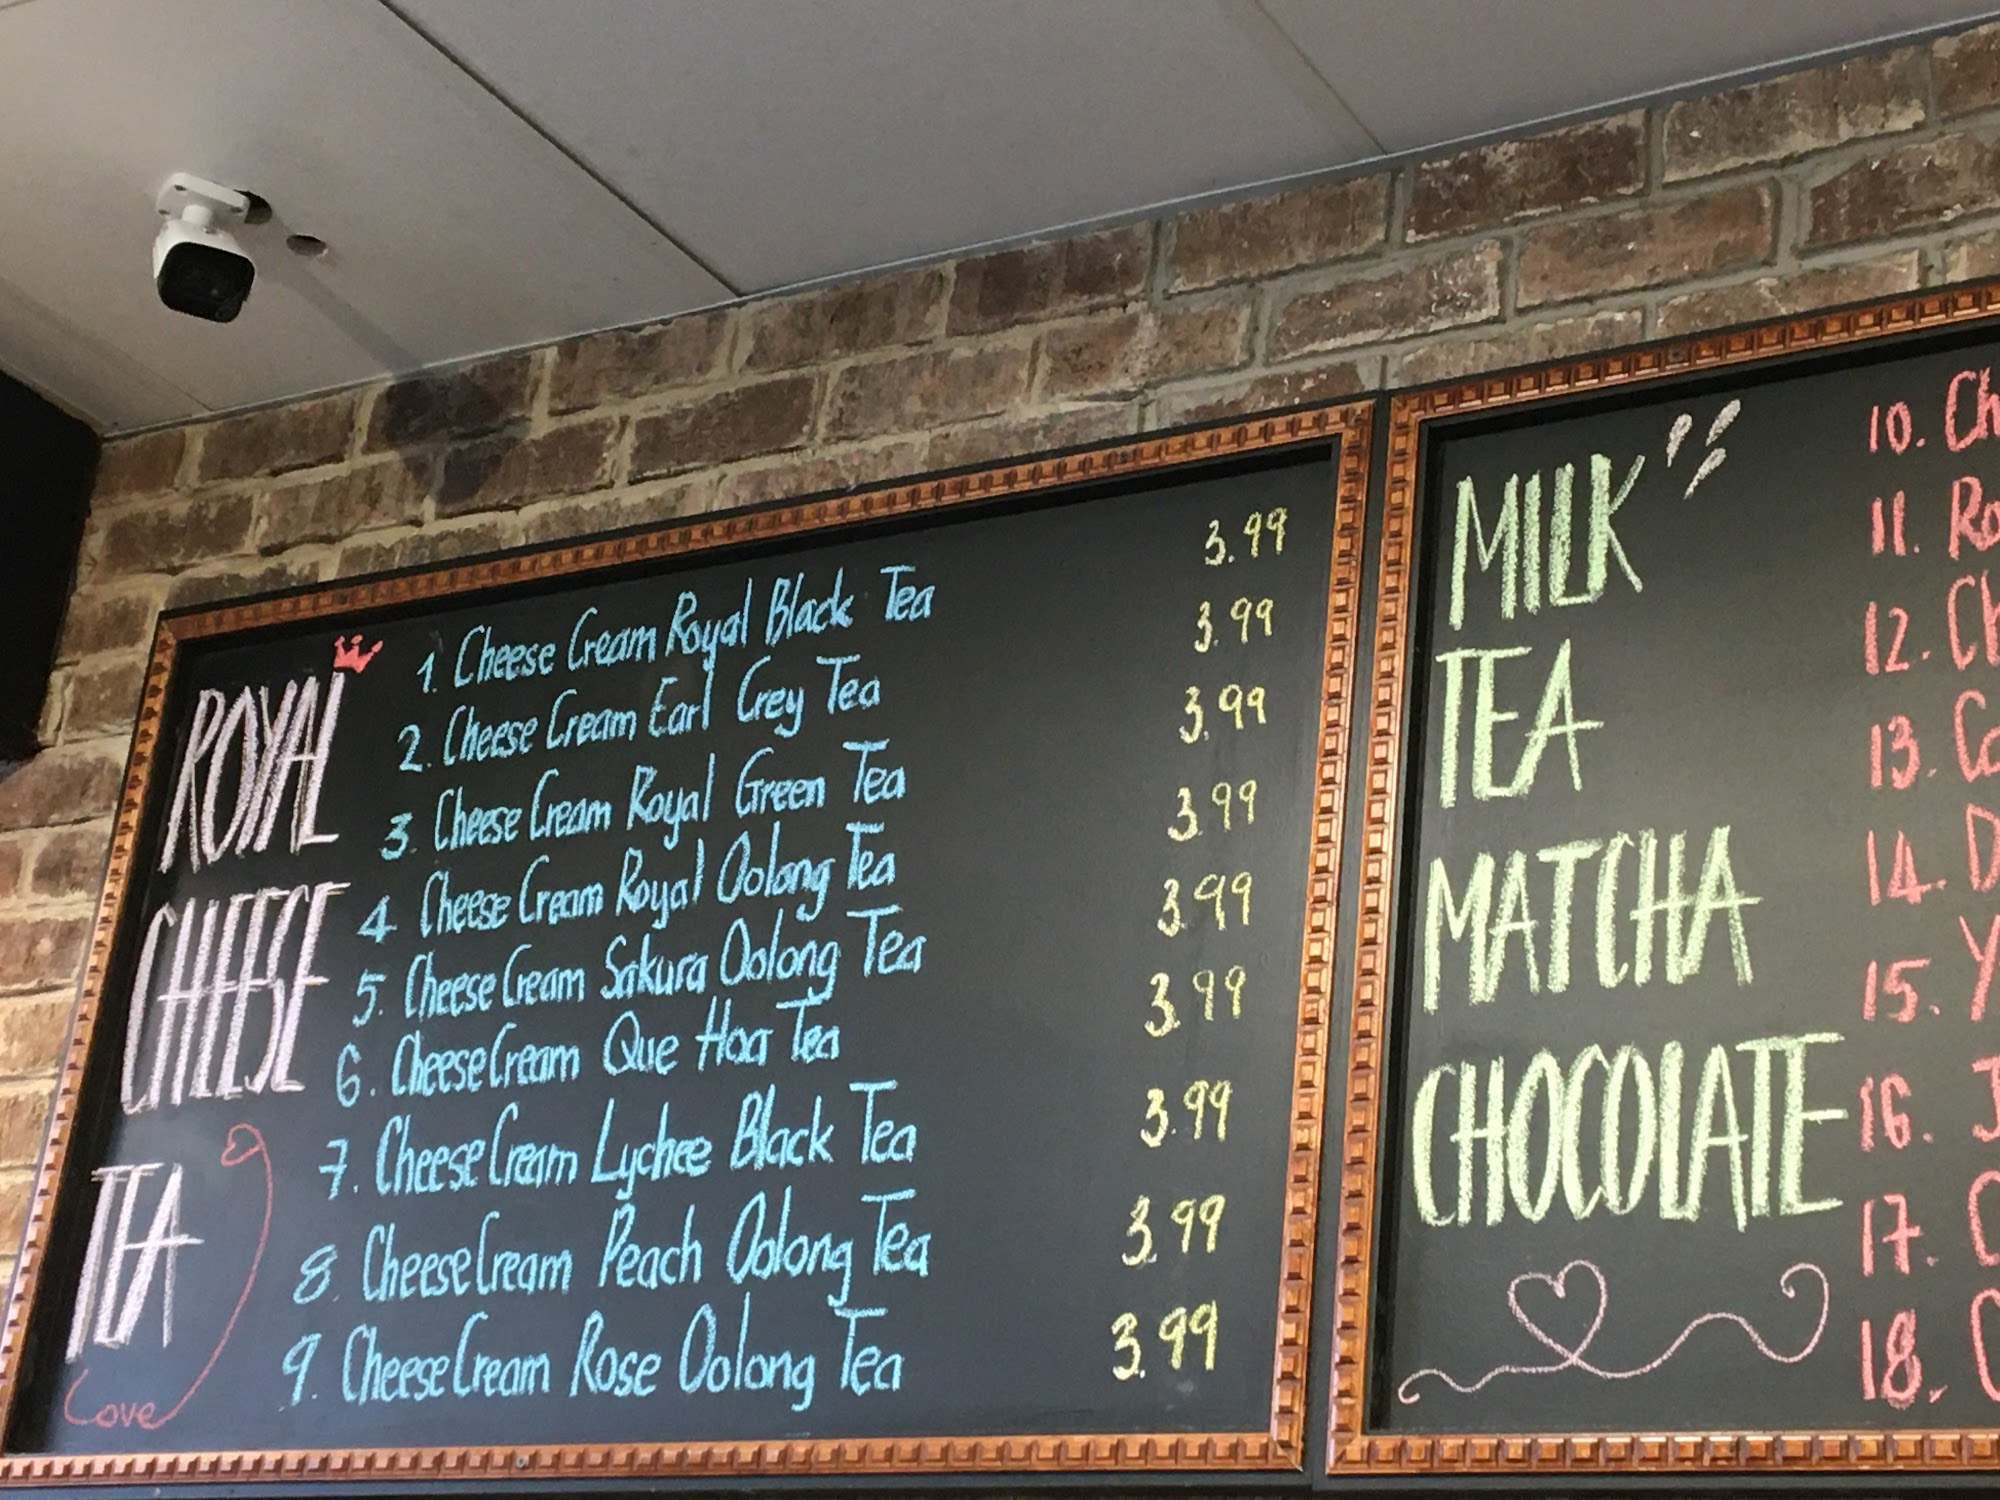 ROYAL
CHEESE
TEA
Love
1. Cheese Cream Royal Black Tea 3.99
2. Cheese Cream Earl Grey Tea 3.99
3. Cheese Cream Royal Green Tea 3.99
4 Cheese Cream Royal Oolong Tea 3.99
5. Cheese Cream Sakura Oolong Tea 3.99
6. Cheese Cream Que Hoa Tea 3.99
7. Cheese Cream Lychee Black Tea 3.99
8. Cheese Cream Peach Oolong Tea 3.99
9. Cheese Cream Rose Oolong Tea 3.99
MILK
TEA
MATCHA
CHOCOLATE
10.
11.
12.
13.
14.
15.
16.
17.
18.